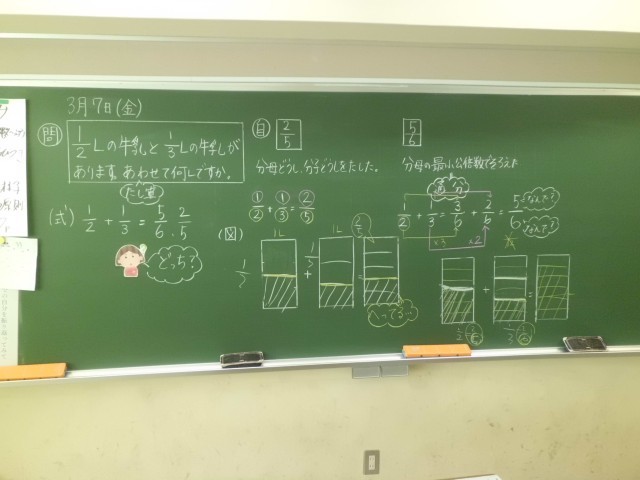 3月7日(金)
問
1/2 Lの牛乳と 1/3 Lの牛乳が
あります。あわせて何Lですか。
たし算
(式) 1/2 + 1/3 = 5/6 . 2/5
どっち?
自 2/5
分母どうし、分子どうしをたした。
1/2 + 1/3 = 2/5
(図)
1L
1L
1/3
+
=
2/5
へってる…
5/6
分母の最小公倍数でそろえた
通分
1/2 + 1/3 = 3/6 + 2/6 = 5/6
×3
×2
なんで?
+
=
1/2
1/3